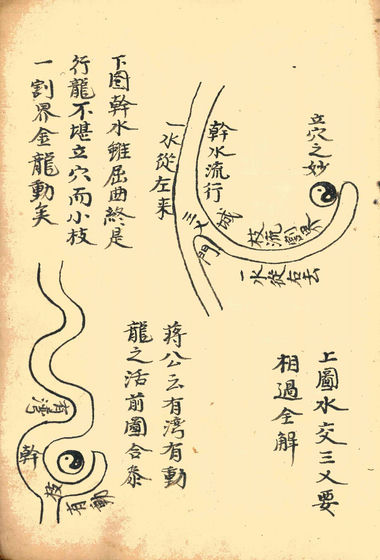 立穴之妙
枝流割界
一水從右去
幹水流行
三乂城門
一水從左来
下图幹水雖屈曲終是
行龍不堪立穴而小枝
一割界金龍動矣
上圖水交三乂要
相過全解
蔣公云有湾有動
龍之活前圖合叅
有灣
幹
枝
有動